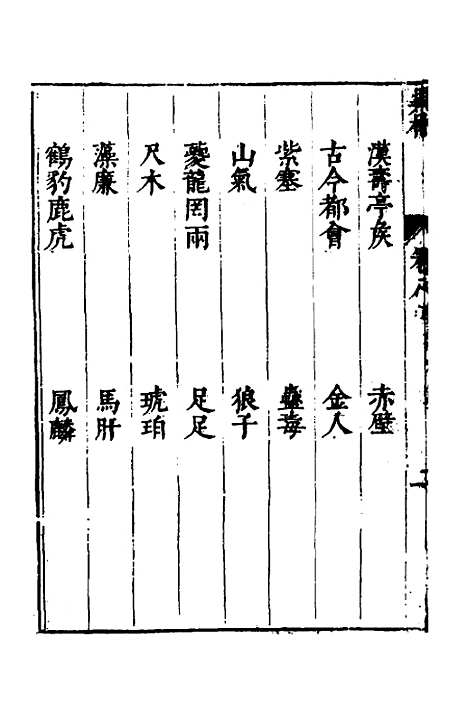 漢壽亭侯 赤壁
古今都會 金人
紫塞 蠱毒
山氣 狼子
夔龍罔兩 足足
尺木 琥珀
藻廉 馬肝
鶴豹鹿虎 鳳麟